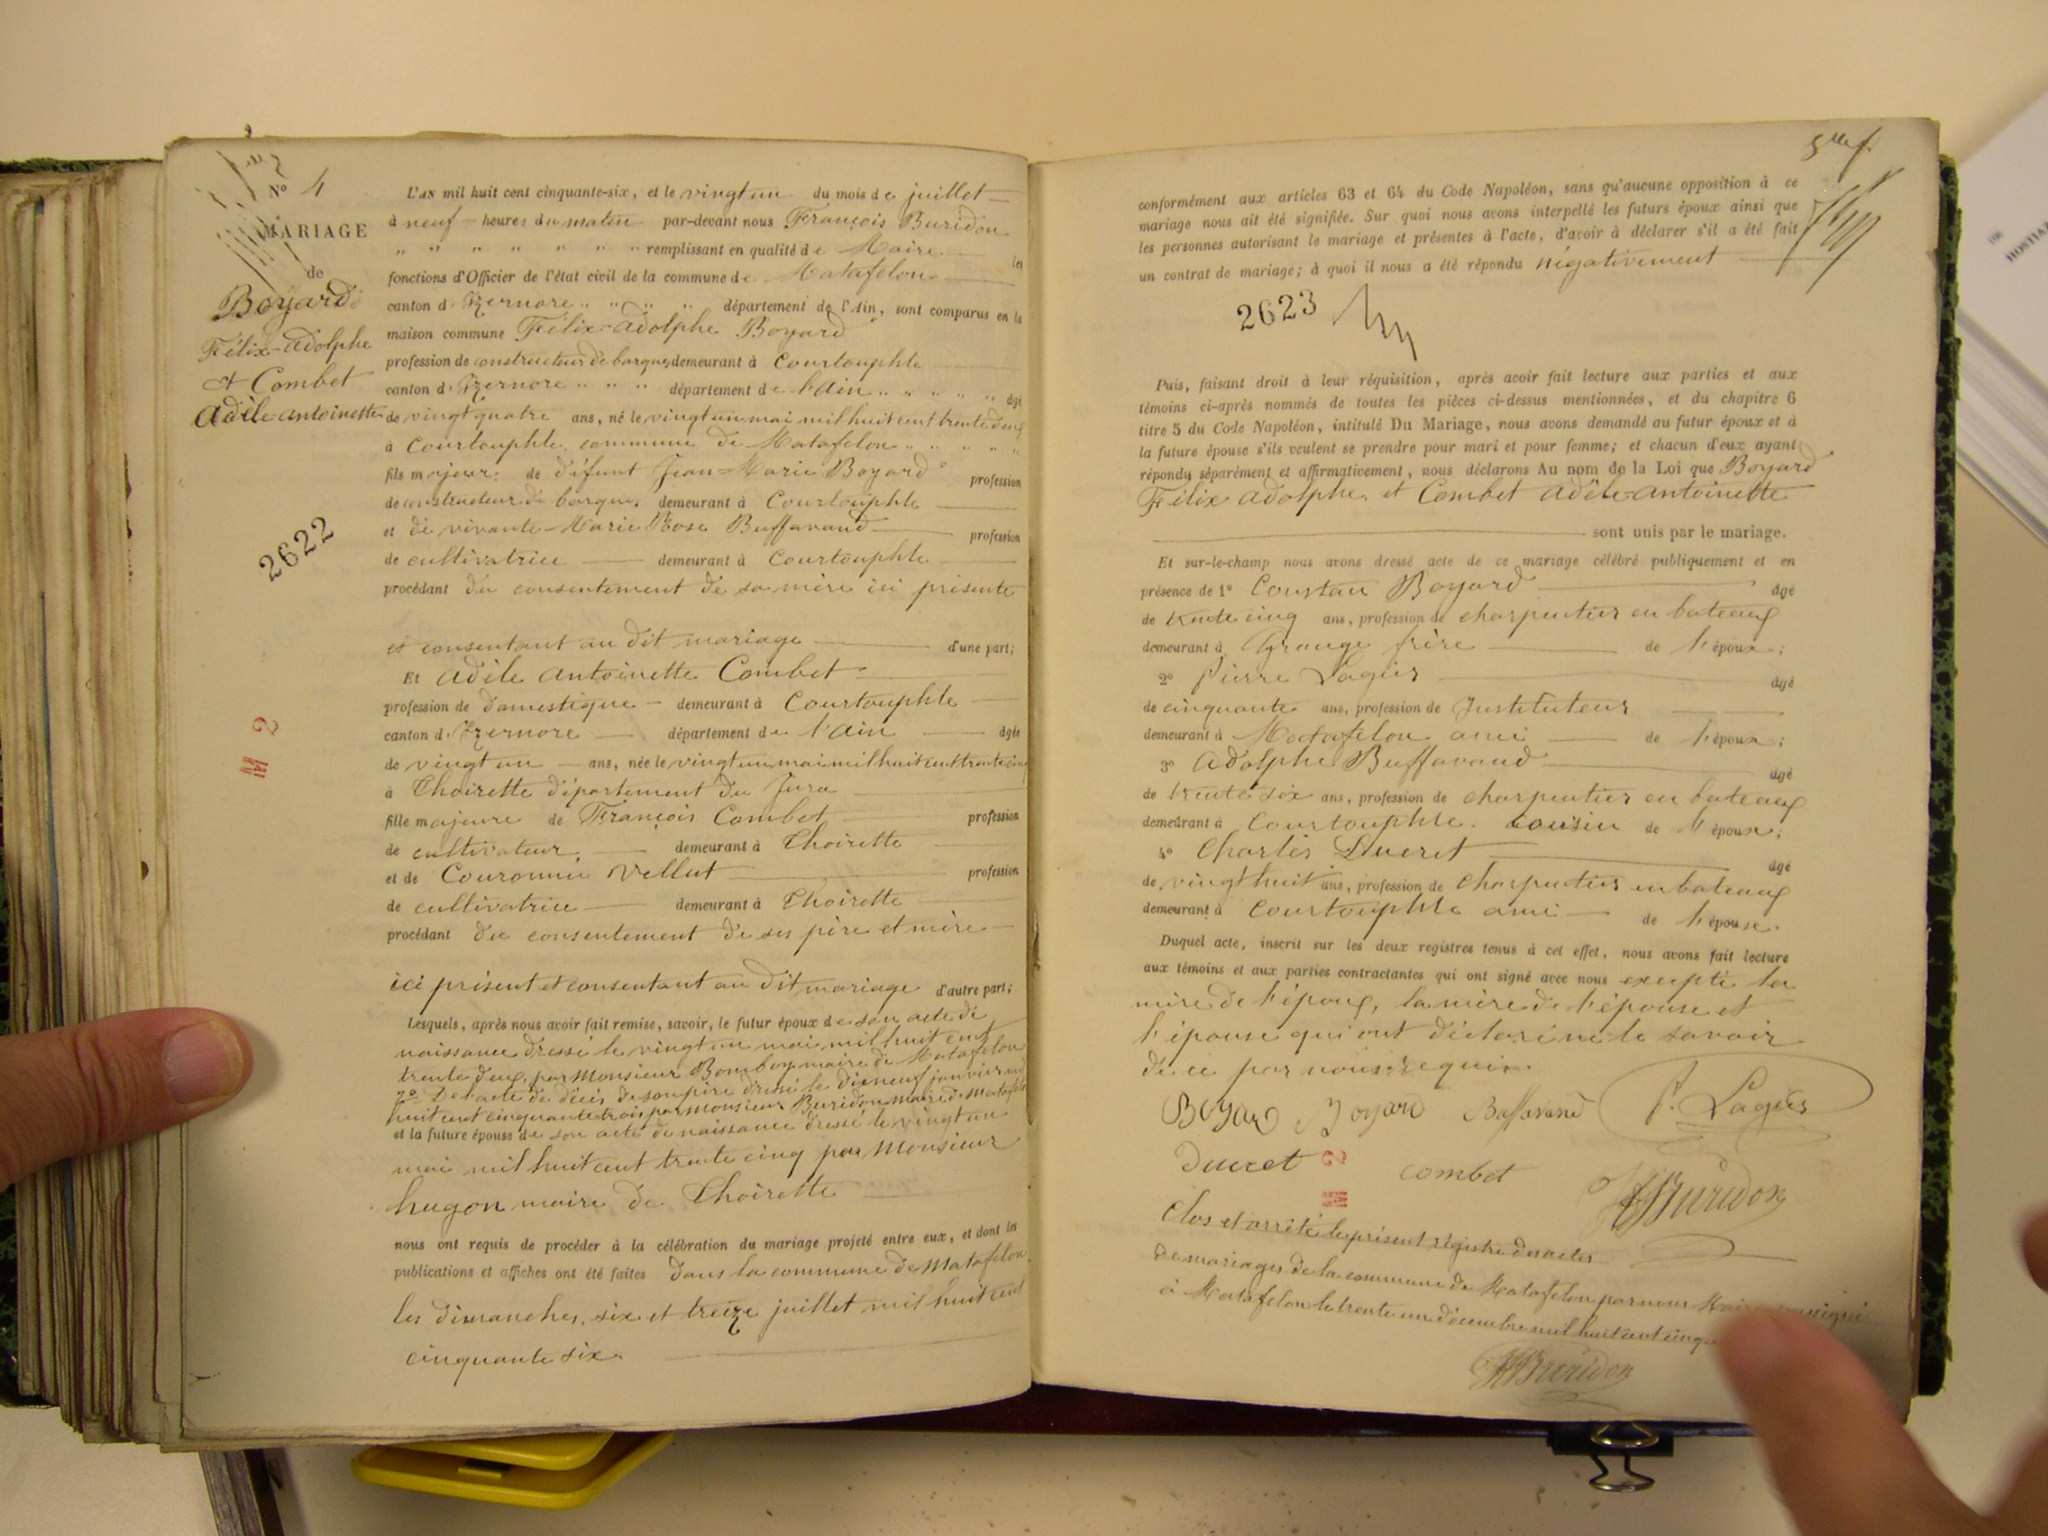 5 lle f.
N° 4
MARIAGE
de
Boyard
Félix-adolphe
et Combet
adèle antoinette
2622
M 2
L'an mil huit cent cinquante-six, et le vingt un du mois de juillet
à neuf heures du matin par-devant nous François Buridon
" " " " " " " remplissant en qualité de Maire les
fonctions d'Officier de l'état civil de la commune de Matafelon
canton d'Izernore " " " " département de l'Ain, sont comparus en la
maison commune Félix-adolphe Boyard
profession de constructeur de barques demeurant à Courtouphle
canton d'Izernore " " " département de l'ain " " " " " âgé
de vingt quatre ans, né le vingt un mai mil huit cent trente deux
à Courtouphle commune de Matafelon " " " " "
fils majeur de défunt Jean-Marie Boyard profession
de constructeur de barques demeurant à Courtouphle
et de vivante Marie Rose Buffavand profession
de cultivatrice demeurant à Courtouphle
procédant du consentement de sa mère ici présente
et consentant au dit mariage d'une part;
Et adèle antoinette Combet
profession de domestique demeurant à Courtouphle
canton d'Izernore département de l'ain âgée
de vingt un ans, née le vingt un mai mil huit cent trente cinq
à Thoirette département du Jura
fille majeure de François Combet profession
de cultivateur demeurant à Thoirette
et de Couronnée Vellut profession
de cultivatrice demeurant à Thoirette
procédant du consentement de ses père et mère
ici présent et consentant au dit mariage d'autre part;
Lesquels, après nous avoir fait remise, savoir, le futur époux de son acte de
naissance dressé le vingt un mai mil huit cent
trente deux par Monsieur Bomboy maire de Matafelon
2° De l'acte de décès de son père dressé le dix neuf janvier mil
huit cent cinquante trois par Monsieur Buridon maire de Matafelon
et la future épouse de son acte de naissance dressé le vingt un
mai mil huit cent trente cinq par Monsieur
hugon maire de Thoirette
nous ont requis de procéder à la célébration du mariage projeté entre eux, et dont les
publications et affiches ont été faites dans la commune de Matafelon
les dimanches, six et treize juillet mil huit cent
cinquante six.
5 lle f.
conformément aux articles 63 et 64 du Code Napoléon, sans qu'aucune opposition à ce
mariage nous ait été signifiée. Sur quoi nous avons interpellé les futurs époux ainsi que
les personnes autorisant le mariage et présentes à l'acte, d'avoir à déclarer s'il a été fait
un contrat de mariage; à quoi il nous a été répondu négativement
2623
Puis, faisant droit à leur réquisition, après avoir fait lecture aux parties et aux
témoins ci-après nommés de toutes les pièces ci-dessus mentionnées, et du chapitre 6
titre 5 du Code Napoléon, intitulé Du Mariage, nous avons demandé au futur époux et à
la future épouse s'ils veulent se prendre pour mari et pour femme; et chacun d'eux ayant
répondu séparément et affirmativement, nous déclarons Au nom de la Loi que Boyard
Félix adolphe et Combet adèle antoinette
sont unis par le mariage.
Et sur-le-champ nous avons dressé acte de ce mariage célébré publiquement et en
présence de 1° Constan Boyard âgé
de trente cinq ans, profession de charpentier en bateaux
demeurant à Grange frère de l'époux;
2° Pierre Lagier âgé
de cinquante ans, profession de Instituteur
demeurant à Matafelon ami de l'époux;
3° adolphe Buffavand âgé
de trente six ans, profession de charpentier en bateaux
demeurant à Courtouphle cousin de l'époux;
4° Charles Ducret âgé
de vingt huit ans, profession de charpentier en bateaux
demeurant à Courtouphle ami de l'épouse.
Duquel acte, inscrit sur les deux registres tenus à cet effet, nous avons fait lecture
aux témoins et aux parties contractantes qui ont signé avec nous excepté la
mère de l'époux, la mère de l'épouse et
l'épouse qui ont déclaré ne le savoir
de ce par nous requis.
Boyard Boyard Buffavand P. Lagier
Ducret combet
M 2
Buridon
Clos et arrêté le présent régistre des actes
de mariages de la commune de Matafelon par nous Maire soussigné
à Matafelon le trente un décembre mil huit cent
Buridon